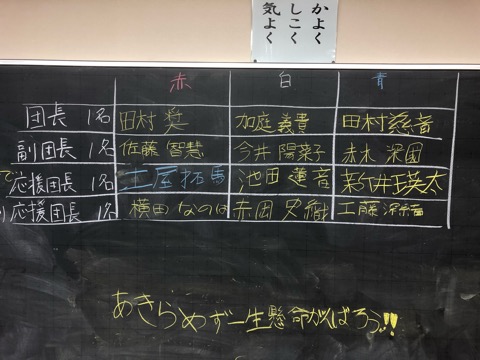 かよく
しこく
気よく
赤 白 青
団長 1名 田村 奨 加庭 義貴 田村
副団長 1名 佐藤 智慧 今井 陽菜子 赤木
応援団長 1名 土屋 拓馬 池田 蓮音 新井 瑛太
応援団長 1名 横田 なのは 赤岡 史織 工藤
あきらめず一生懸命がんばろう!!